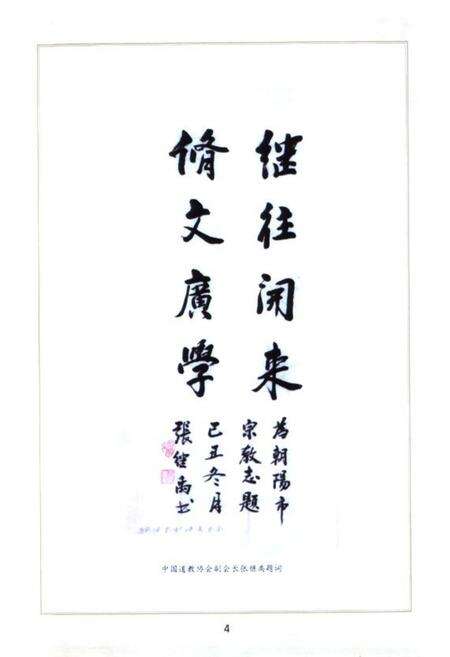 继往开来
脩文廣學
为朝陽市
宗教志題
己丑冬月
張继禹书
中国道教协会副会长张继禹题词
4